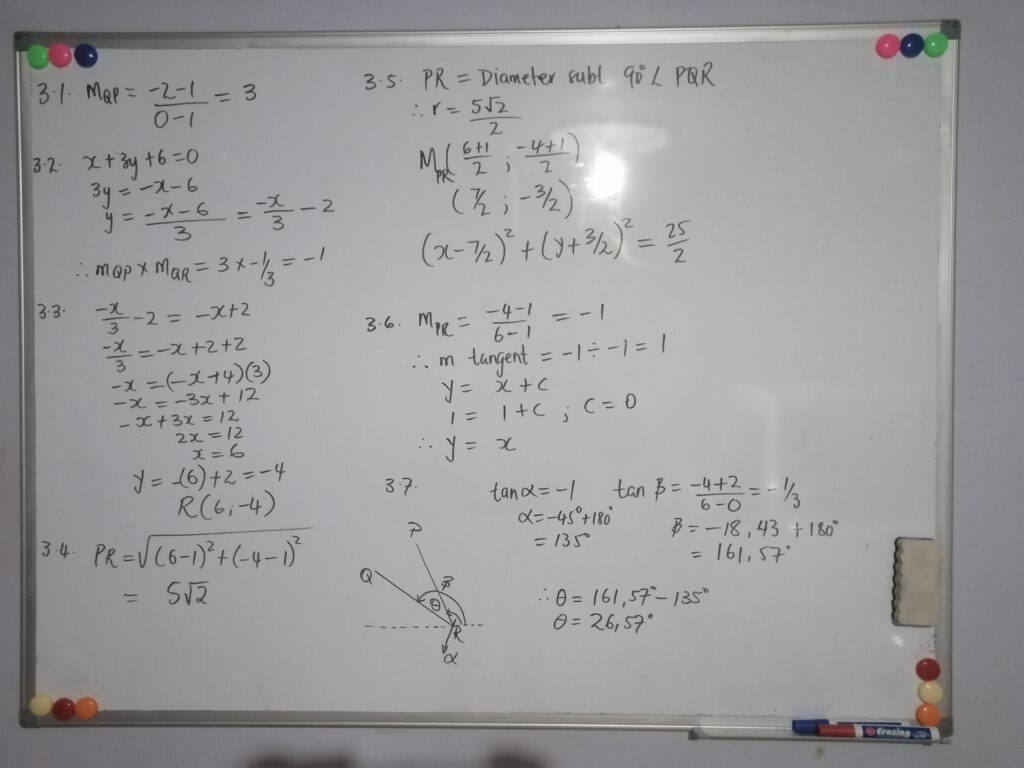 3.1. MQP = -2-1/0-1 = 3
3.2. x+3y+6=0
3y = -x-6
y = -x-6/3 = -x/3 - 2
∴ mQP x MQR = 3 x -1/3 = -1
3.3. -x/3 - 2 = -x+2
-x/3 = -x+2+2
-x = (-x+4)(3)
-x = -3x+12
-x+3x = 12
2x = 12
x = 6
y = -(6)+2 = -4
R(6;-4)
3.4. PR = √(6-1)²+(-4-1)²
= 5√2
3.5. PR = Diameter subt. 90° ∠ PQR
∴ r = 5√2/2
MPR(6+1/2 ; -4+1/2)
(7/2 ; -3/2)
(x-7/2)² + (y+3/2)² = 25/2
3.6. MPR = -4-1/6-1 = -1
∴ m tangent = -1 ÷ -1 = 1
y = x+c
1 = 1+c ; c = 0
∴ y = x
3.7. tanα = -1 tan β = -4+2/6-0 = -1/3
α = -45°+180° β = -18,43 +180°
= 135° = 161,57°
∴ θ = 161,57° - 135°
θ = 26,57°
P
Q
β
θ
R
α
Erasing